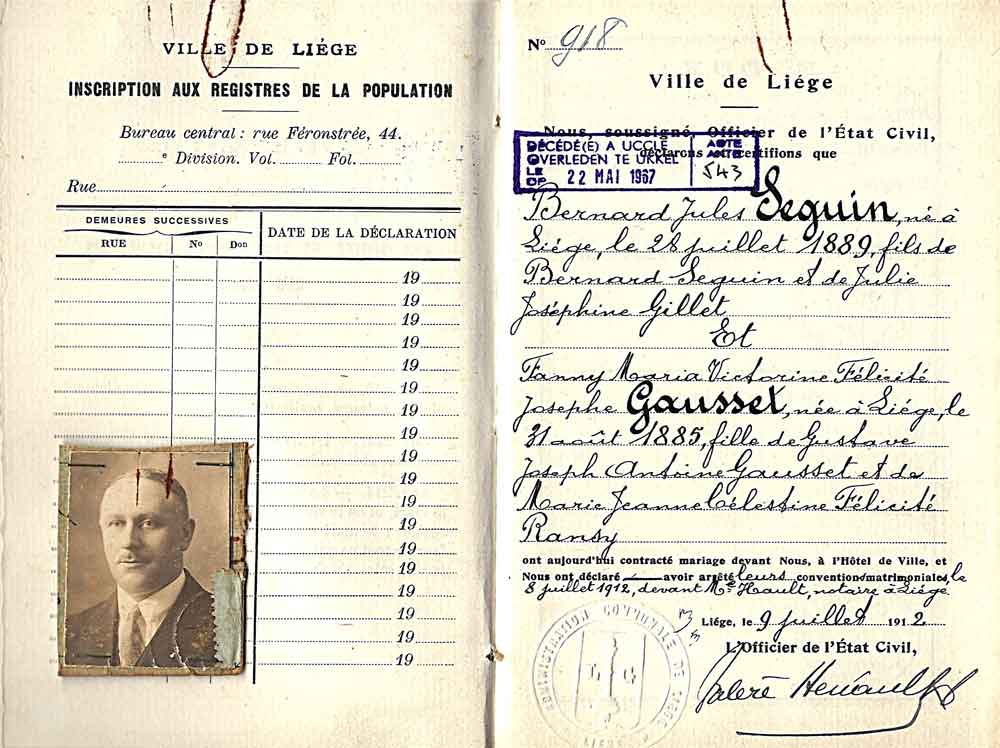 VILLE DE LIÉGE
INSCRIPTION AUX REGISTRES DE LA POPULATION
Bureau central : rue Féronstrée, 44.
e Division. Vol. Fol.
Rue
DEMEURES SUCCESSIVES
RUE No Don
DATE DE LA DÉCLARATION
19
19
19
19
19
19
19
19
19
19
19
19
19
19
19
19
19
19
No 918
Ville de Liége
Nous, soussigné, Officier de l'État Civil,
déclarons et certifions que
DÉCÉDÉ(E) A UCCLE
OVERLEDEN TE UKKEL
LE
OP 22 MAI 1967
ACTE
AKTE
543
Bernard Jules Seguin, né à
Liége, le 28 juillet 1889, fils de
Bernard Seguin et de Julie
Joséphine Gillet
Et
Fanny Maria Victorine Félicité
Josephe Gausset, née à Liége, le
31 août 1885, fille de Gustave
Joseph Antoine Gausset et de
Marie Jeanne Célestine Félicité
Ransy
ont aujourd'hui contracté mariage devant Nous, à l'Hôtel de Ville, et
Nous ont déclaré avoir arrêté leurs convention matrimoniales, le
8 juillet 1912, devant Me Hault, notaire à Liége.
Liége, le 9 juillet 1912
L'Officier de l'État Civil,
ADMINISTRATION COMMUNALE DE LIÉGE
L G
LIÉGE